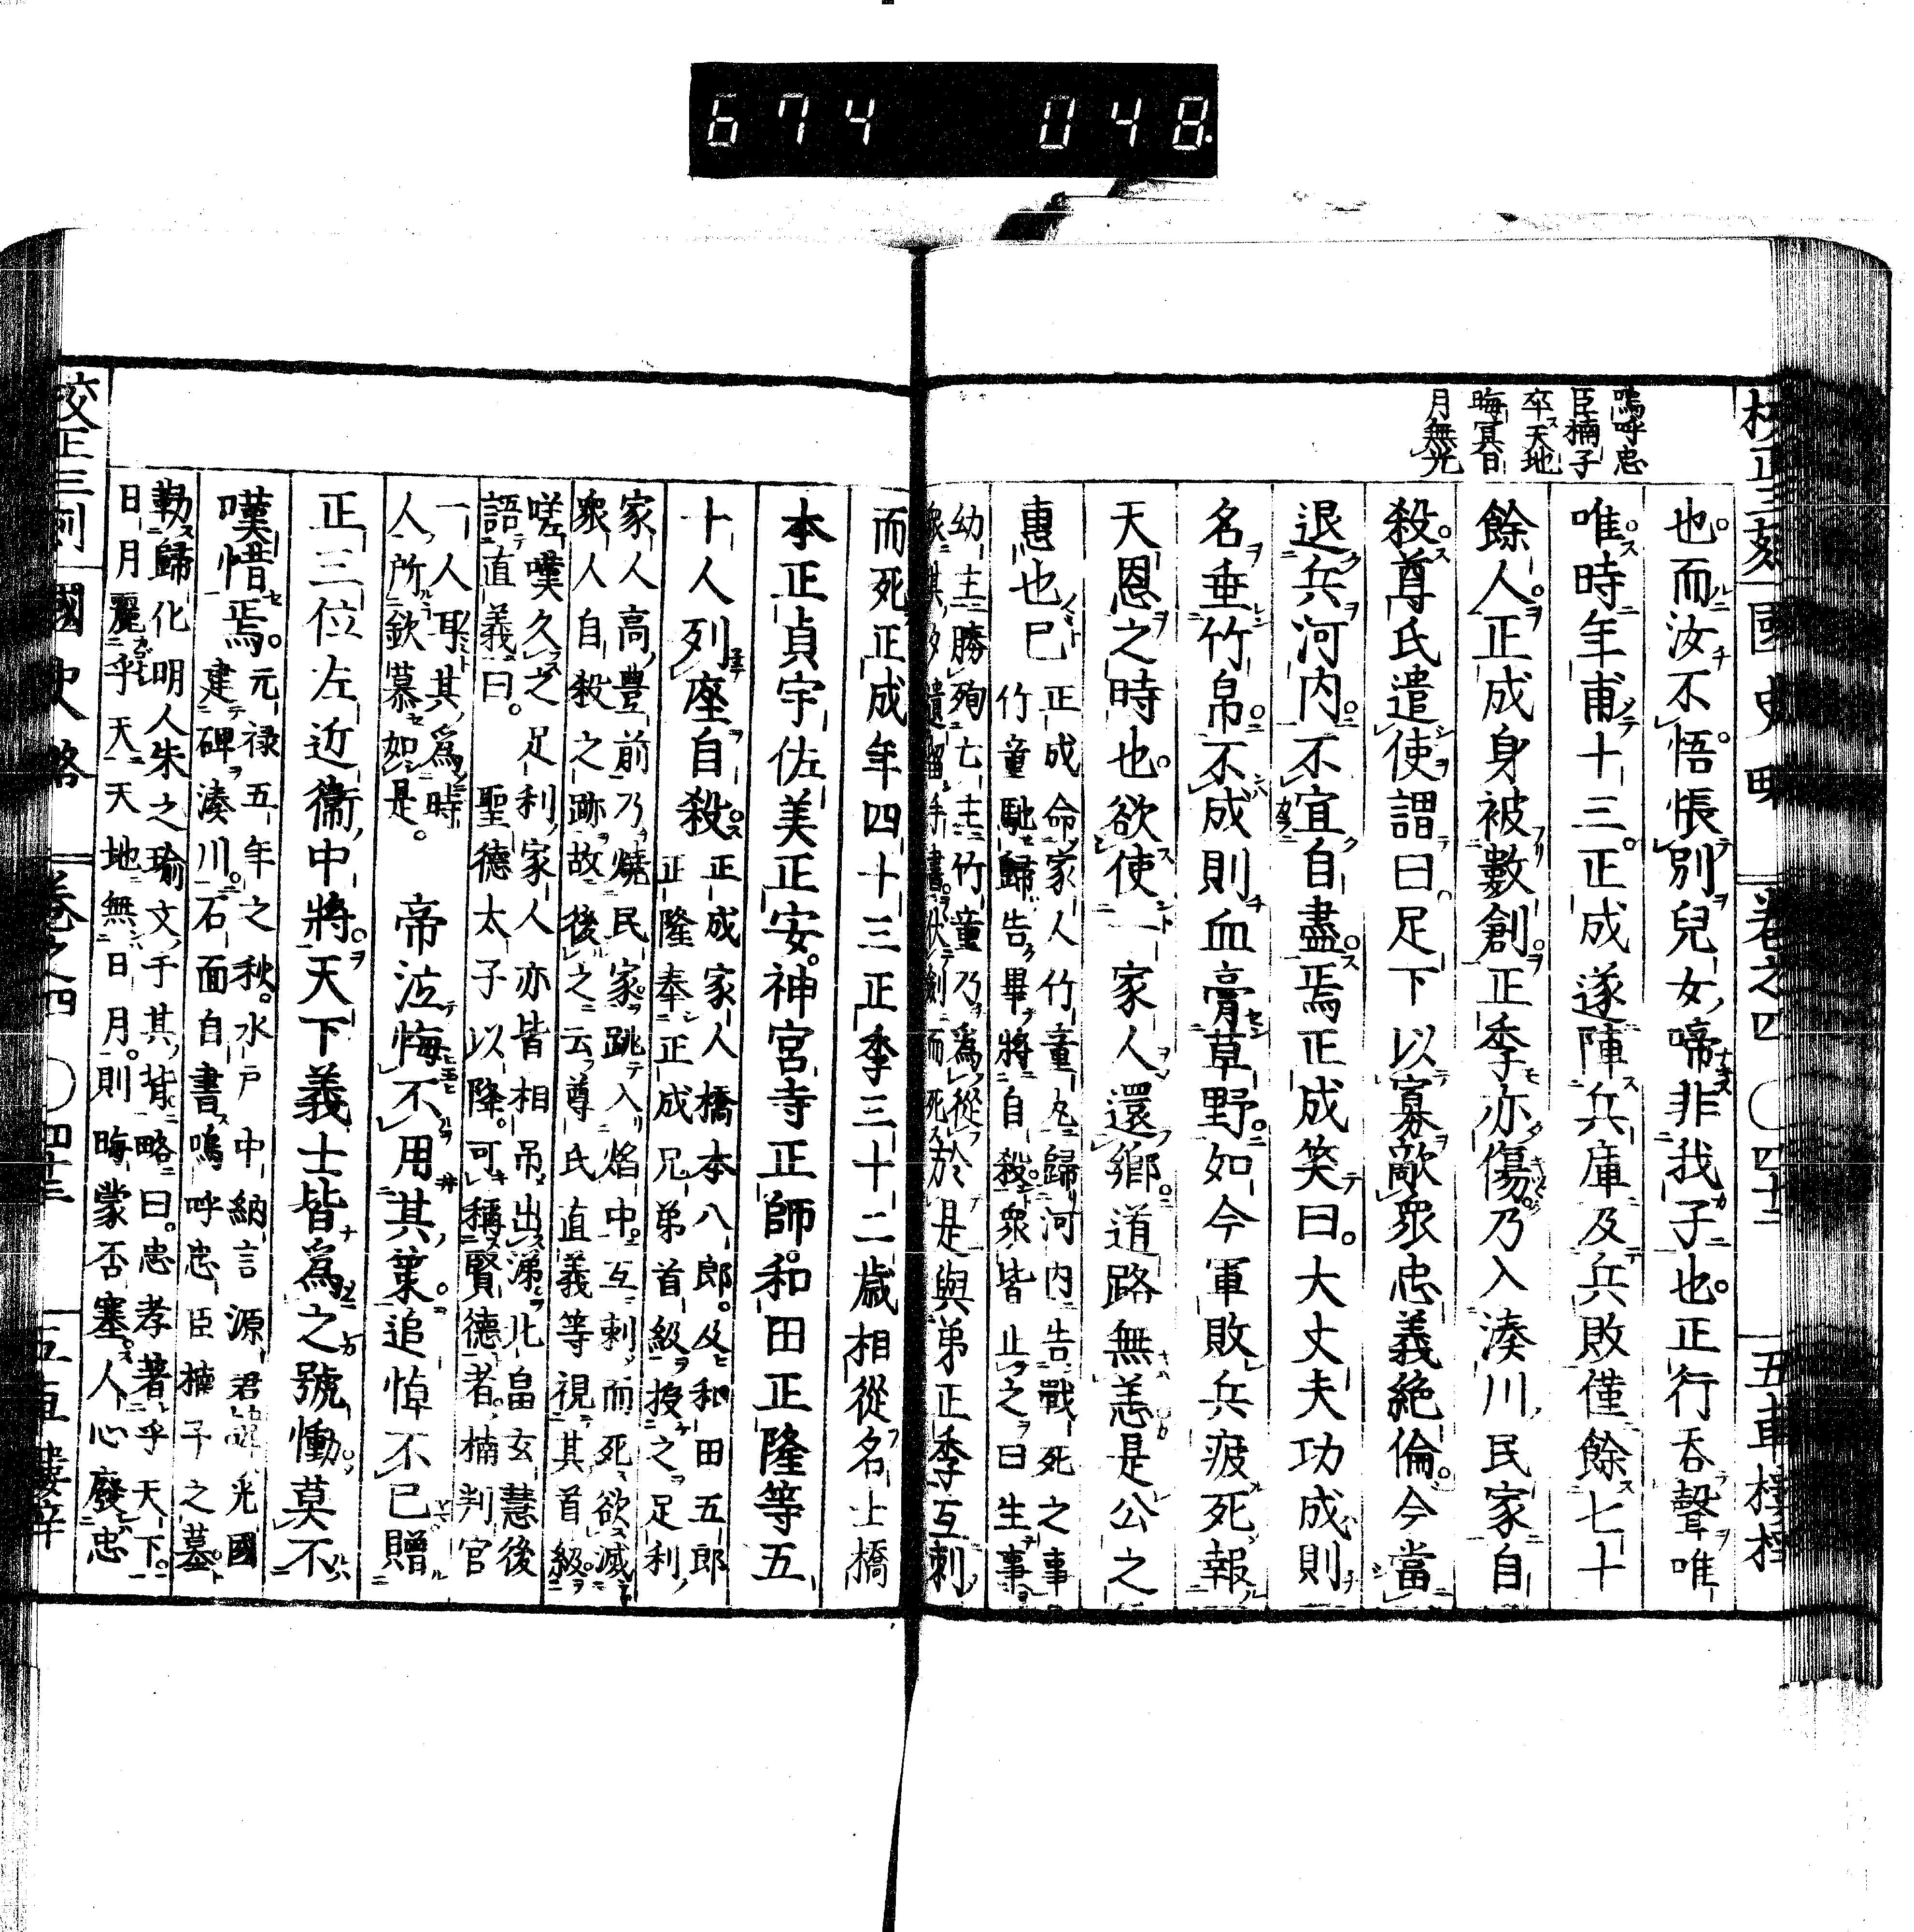 674 048.
校正三刻 國史略 卷之四 〇四十二 五車樓梓
嗚呼忠
臣楠子
卒天地
晦冥日
月無光
也而汝不悟悵別兒女啼非我子也正行吞聲唯
唯時年甫十三正成遂陣兵庫及兵敗僅餘七十
餘人正成身被數創正季亦傷乃入湊川民家自
殺尊氏遣使謂曰足下以寡敵衆忠義絶倫今當
退兵河内不宜自盡焉正成笑曰大丈夫功成則
名垂竹帛不成則血膏草野如今軍敗兵疲死報
天恩之時也欲使一家人還鄉道路無恙是公之
惠也已
正成命家人竹童丸歸河内告戰死之事
竹童馳歸告畢將自殺衆皆止之曰生事
幼主勝殉亡主竹童乃爲從於是與弟正季互刺
而死正成年四十三正季三十二歳相從名士橋
本正貞宇佐美正安神宮寺正師和田正隆等五
十人列座自殺
正成家人橋本八郎及和田五郎
正隆奉正成兄弟首級授之足利
家人高豊前乃燒民家跳入焰中互刺而死欲滅
衆人自殺之跡故後之云尊氏直義等視其首級
嗟嘆久之足利家人亦皆相吊出涕北畠玄慧後
語直義曰聖德太子以降可稱賢德者楠判官
一人耳其爲時
人所欽慕如是
帝泣悔不用其策追悼不已贈
正三位左近衞中將天下義士皆爲之號慟莫不
嘆惜焉
元禄五年之秋水戸中納言源君光國
建碑湊川石面自書嗚呼忠臣楠子之墓
勒歸化明人朱之瑜文于其背略曰忠孝著乎天下
日月麗乎天天地無日月則晦蒙否塞人心廢忠
校正三刻 國史略 卷之四 〇四十三 五車樓梓